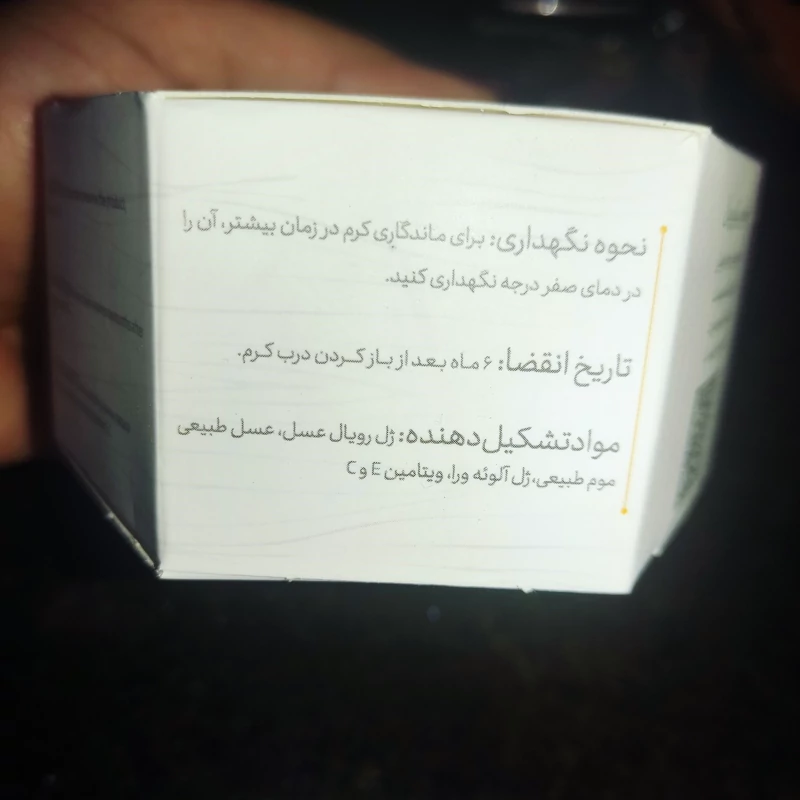 نحوه نگهداری: برای ماندگاری کرم در زمان بیشتر، آن را
در دمای صفر درجه نگهداری کنید.
تاریخ انقضا: ۶ ماه بعد از باز کردن درب کرم.
موادتشکیل‌دهنده: ژل رویال عسل، عسل طبیعی
موم طبیعی،ژل آلوئه ورا، ویتامین E و C